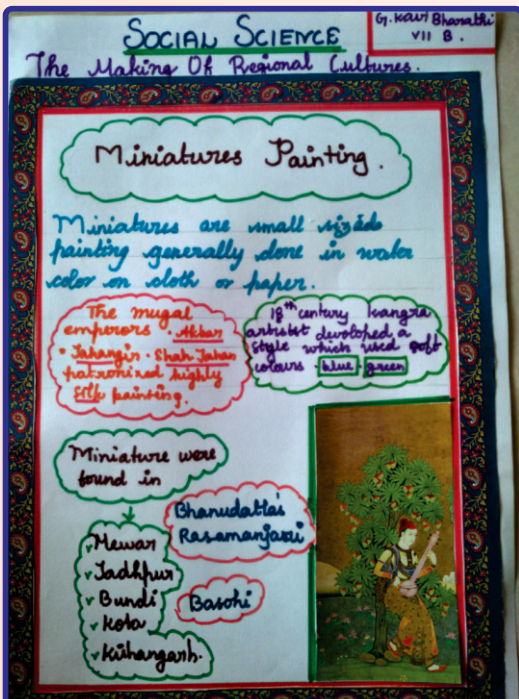 SOCIAL SCIENCE
G. Kavi Bharathi
VII B.
The Making Of Regional Cultures.
Miniatures Painting.
Miniatures are small sized
painting generally done in water
color on cloth or paper.
The mugal
emperors • Akbar
• Jahangir • Shah Jahan
patronized highly
painting.
18th century kangra
artistist devoloped a
style which used soft
colours • blue • green
Miniature were
found in
Mewar
Jadhpur
Bundi
Kota
Bhanudatta's
Rasamanjari
Basohi